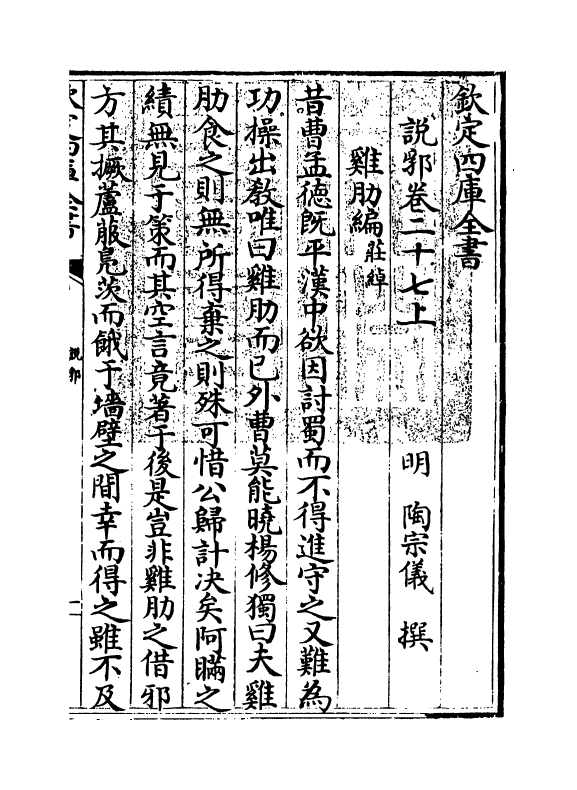 欽定四庫全書
說郛卷二十七上
明 陶宗儀 撰
雞肋編 莊綽
昔曹孟德既平漢中欲因討蜀而不得進守之又難為
功操出教唯曰雞肋而已外曹莫能曉楊修獨曰夫雞
肋食之則無所得棄之則殊可惜公歸計決矣阿瞞之
績無見于策而其空言竟著于後是豈非雞肋之借邪
方其撅蘆菔鳬茨而餓于墻壁之間幸而得之雖不及
欽定四庫全書
說郛
一